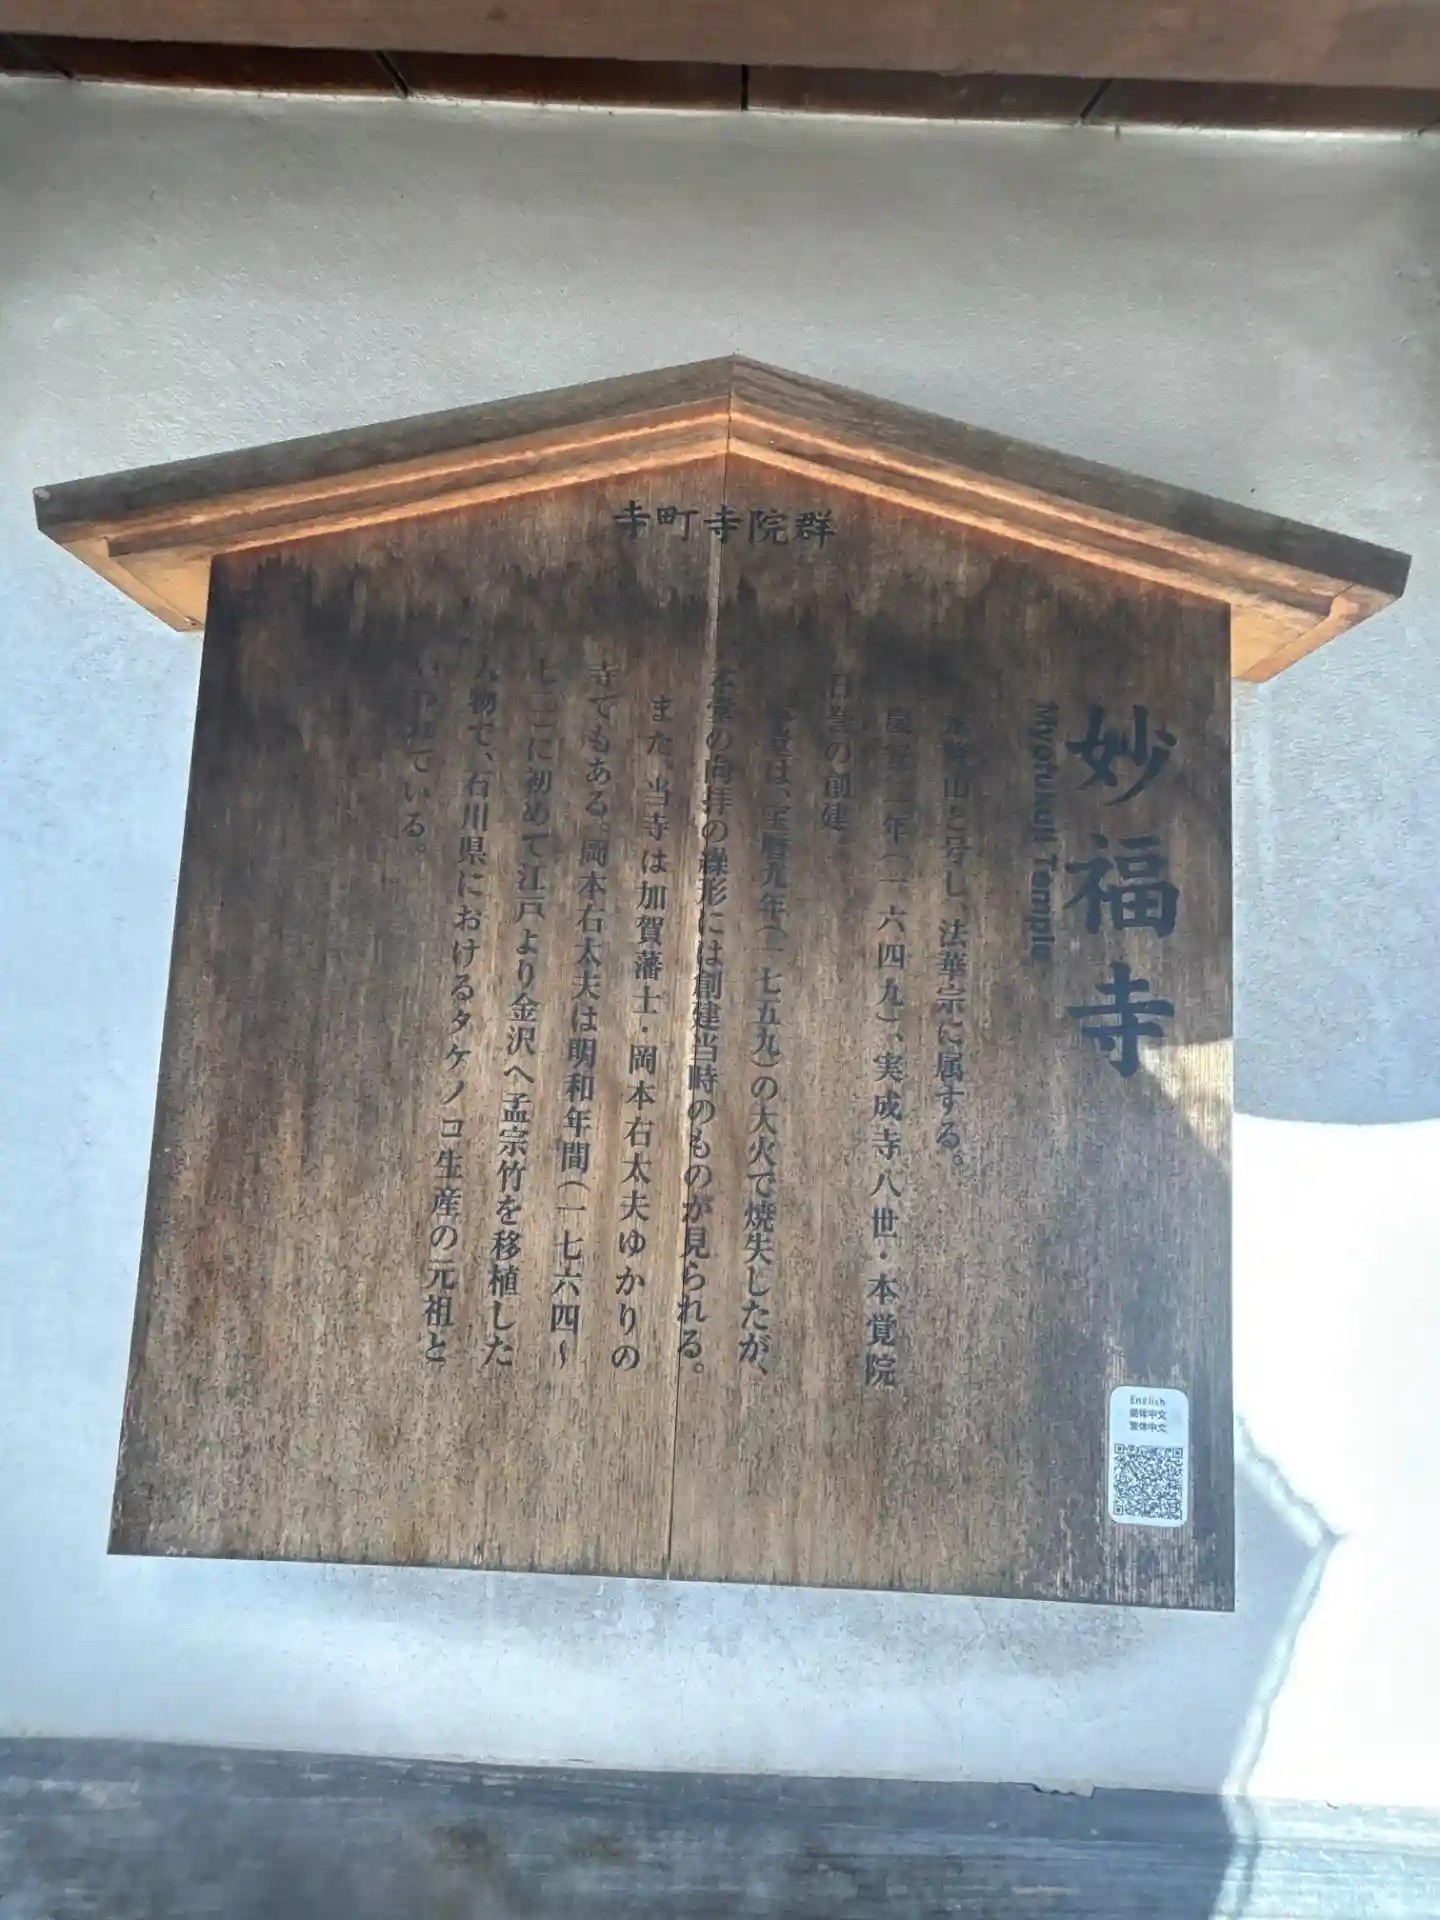 寺町寺院群
妙福寺
Myofukuji Temple
山と号し、法華宗に属する。
慶安二年(一六四九)、実成寺八世・本覚院
の創建。
は、宝暦九年(一七五九)の大火で焼失したが、
本堂の向拝の繰形には創建当時のものが見られる。
また、当寺は加賀藩士・岡本右太夫ゆかりの
寺でもある。岡本右太夫は明和年間(一七六四~
七二)に初めて江戸より金沢へ孟宗竹を移植した
人物で、石川県におけるタケノコ生産の元祖と
いわれている。
English
簡体中文
繁体中文